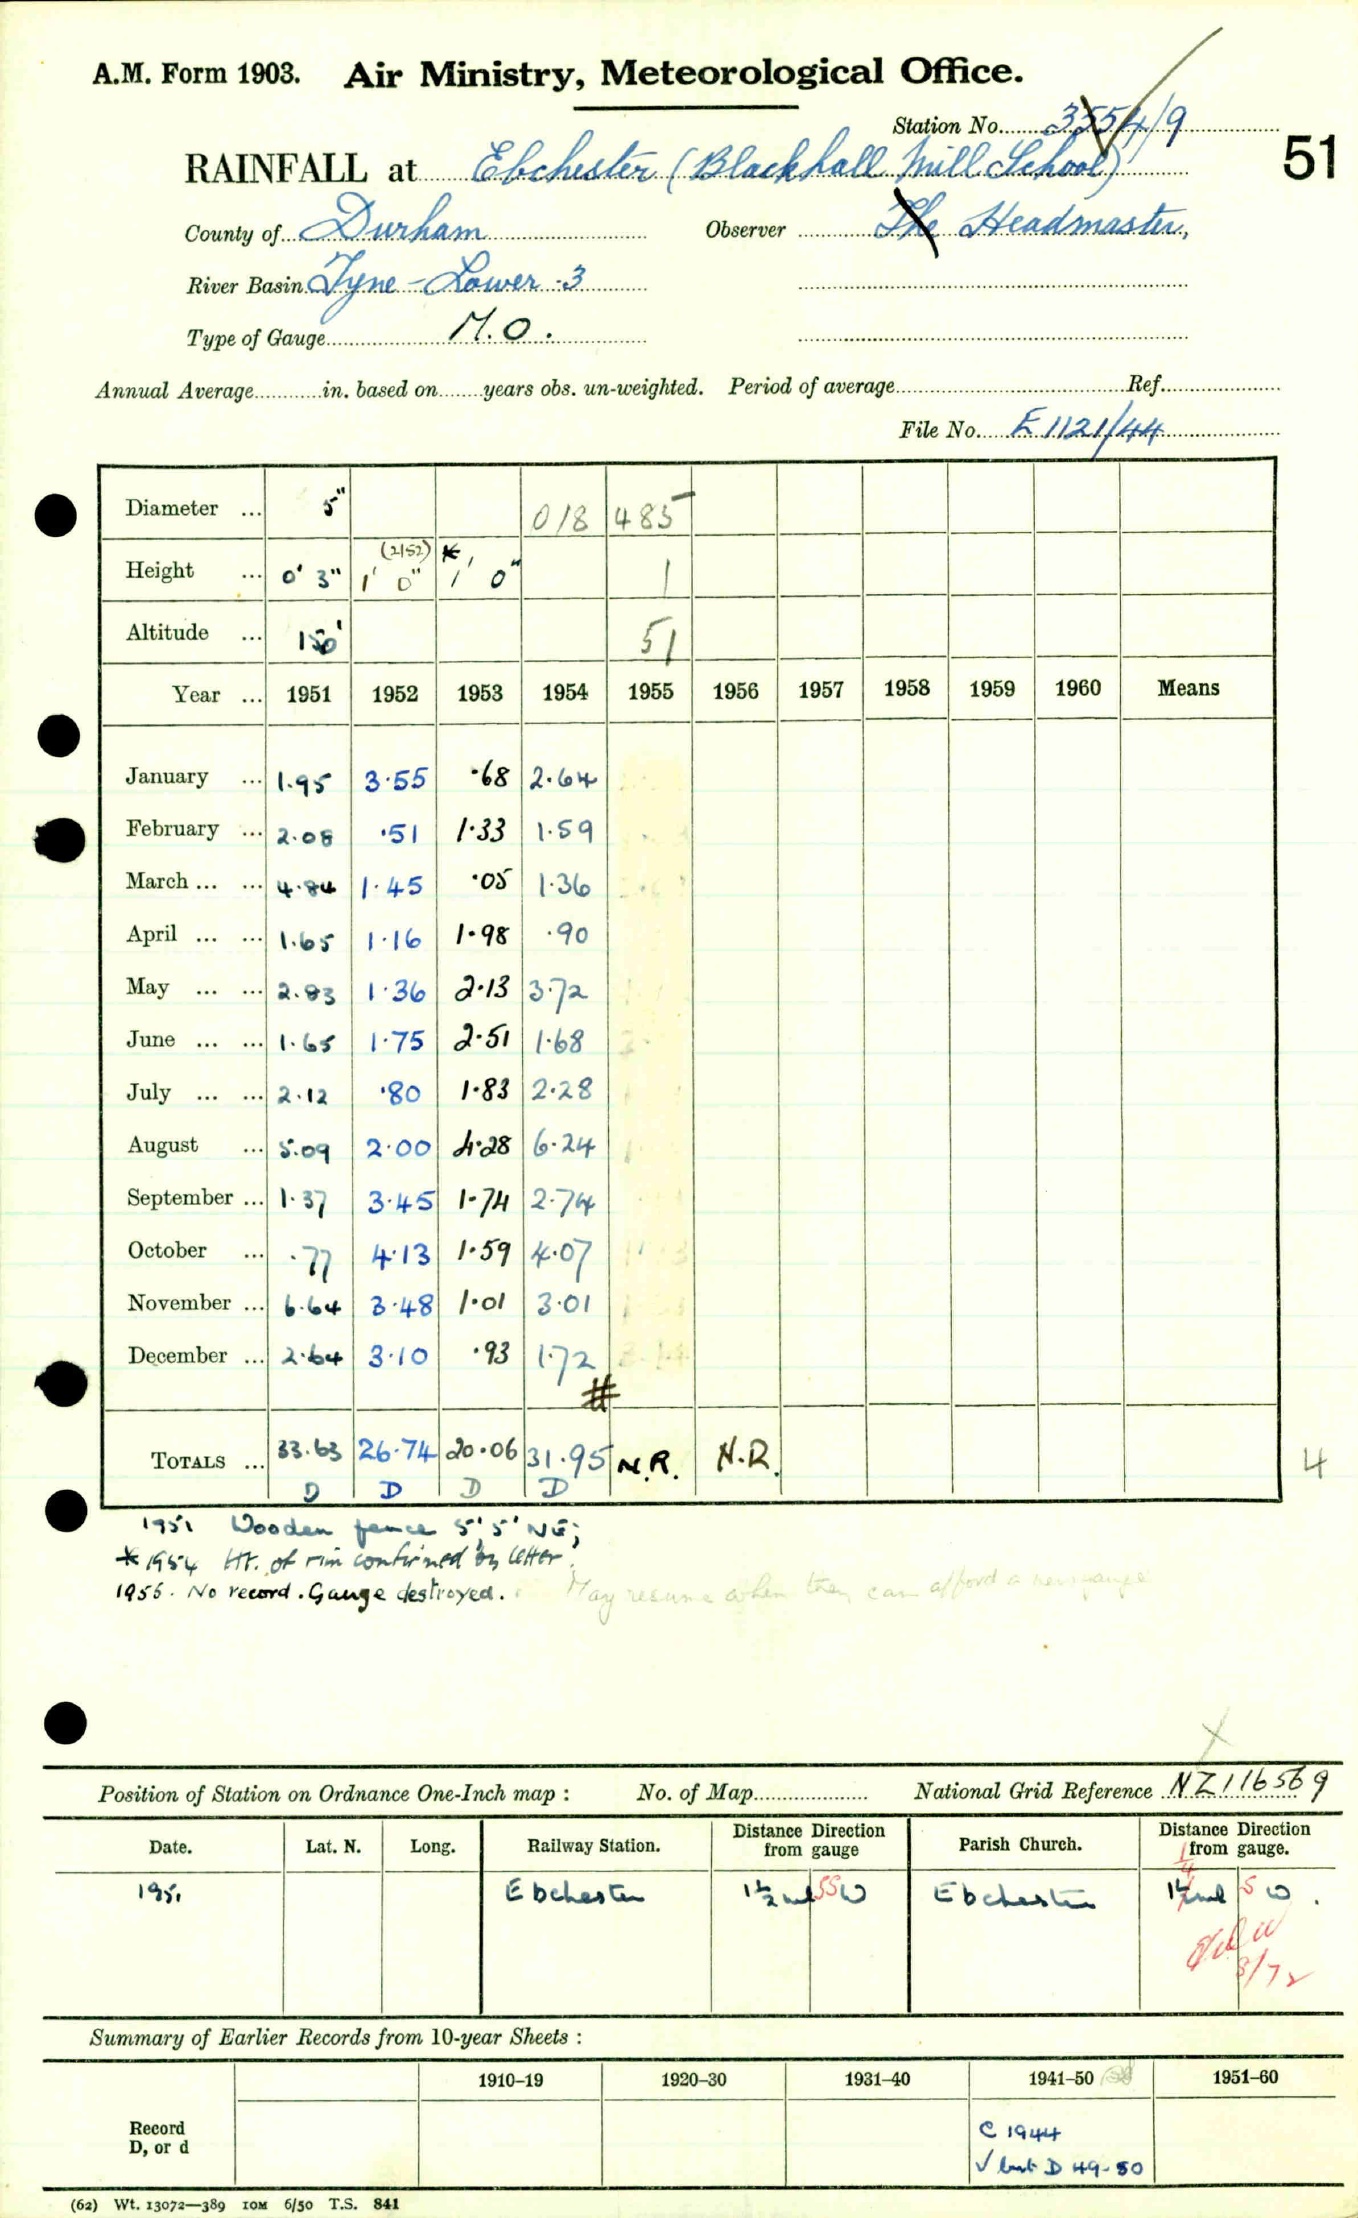 A.M. Form 1903. Air Ministry, Meteorological Office.
Station No. 3554/9
RAINFALL at Ebchester (Blackhall Mill School)
51
County of Durham Observer The Headmaster,
River Basin Tyne - Lower - 3
Type of Gauge M.O.
Annual Average in. based on years obs. un-weighted. Period of average Ref.
File No. E 1121/44
Diameter ... 5" 018 485
Height ... 0' 3" (2/52) 1' 0" * 1' 0" 1
Altitude ... 150' 51
Year ... 1951 1952 1953 1954 1955 1956 1957 1958 1959 1960 Means
January ... 1.95 3.55 .68 2.64
February ... 2.08 .51 1.33 1.59
March ... ... 4.84 1.45 .05 1.36
April ... ... 1.65 1.16 1.98 .90
May ... ... 2.83 1.36 2.13 3.72
June ... ... 1.65 1.75 2.51 1.68
July ... ... 2.12 .80 1.83 2.28
August ... 5.09 2.00 4.28 6.24
September ... 1.37 3.45 1.74 2.74
October ... .77 4.13 1.59 4.07
November ... 6.64 3.48 1.01 3.01
December ... 2.64 3.10 .93 1.72
#
TOTALS ... 33.63 26.74 20.06 31.95 N.R. N.R. 4
D D D D
1951 Wooden fence 5', 5' NE;
* 1954 Ht. of rim confirmed by letter.
1955. No record. Gauge destroyed. May resume when they can afford a new gauge
Position of Station on Ordnance One-Inch map : No. of Map National Grid Reference NZ 116569
Date. Lat. N. Long. Railway Station. Distance Direction from gauge Parish Church. Distance Direction from gauge.
1951 Ebchester 1½ ml SSW Ebchester 1¼ ml SW.
8/72
Summary of Earlier Records from 10-year Sheets :
1910–19 1920–30 1931–40 1941–50 1951–60
Record
D, or d
C 1944
√ but D 49-50
(62) Wt. 13072—389 10M 6/50 T.S. 841